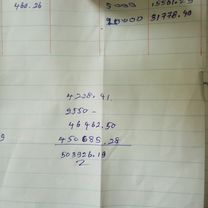 460.26
5000
20000 31778.40
4228.41
2550 -
46462.50
450685.28
503926.19